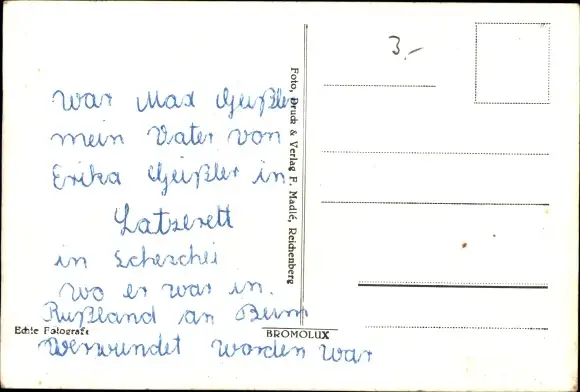 War Max Geißler
mein Vater von
Erika Geißler in
Latzerett
in Schechei
wo er war in.
Rußland an Beim
Verwundet worden war
Echte Fotografie
Foto, Druck & Verlag F. Madlé, Reichenberg
BROMOLUX
3.-